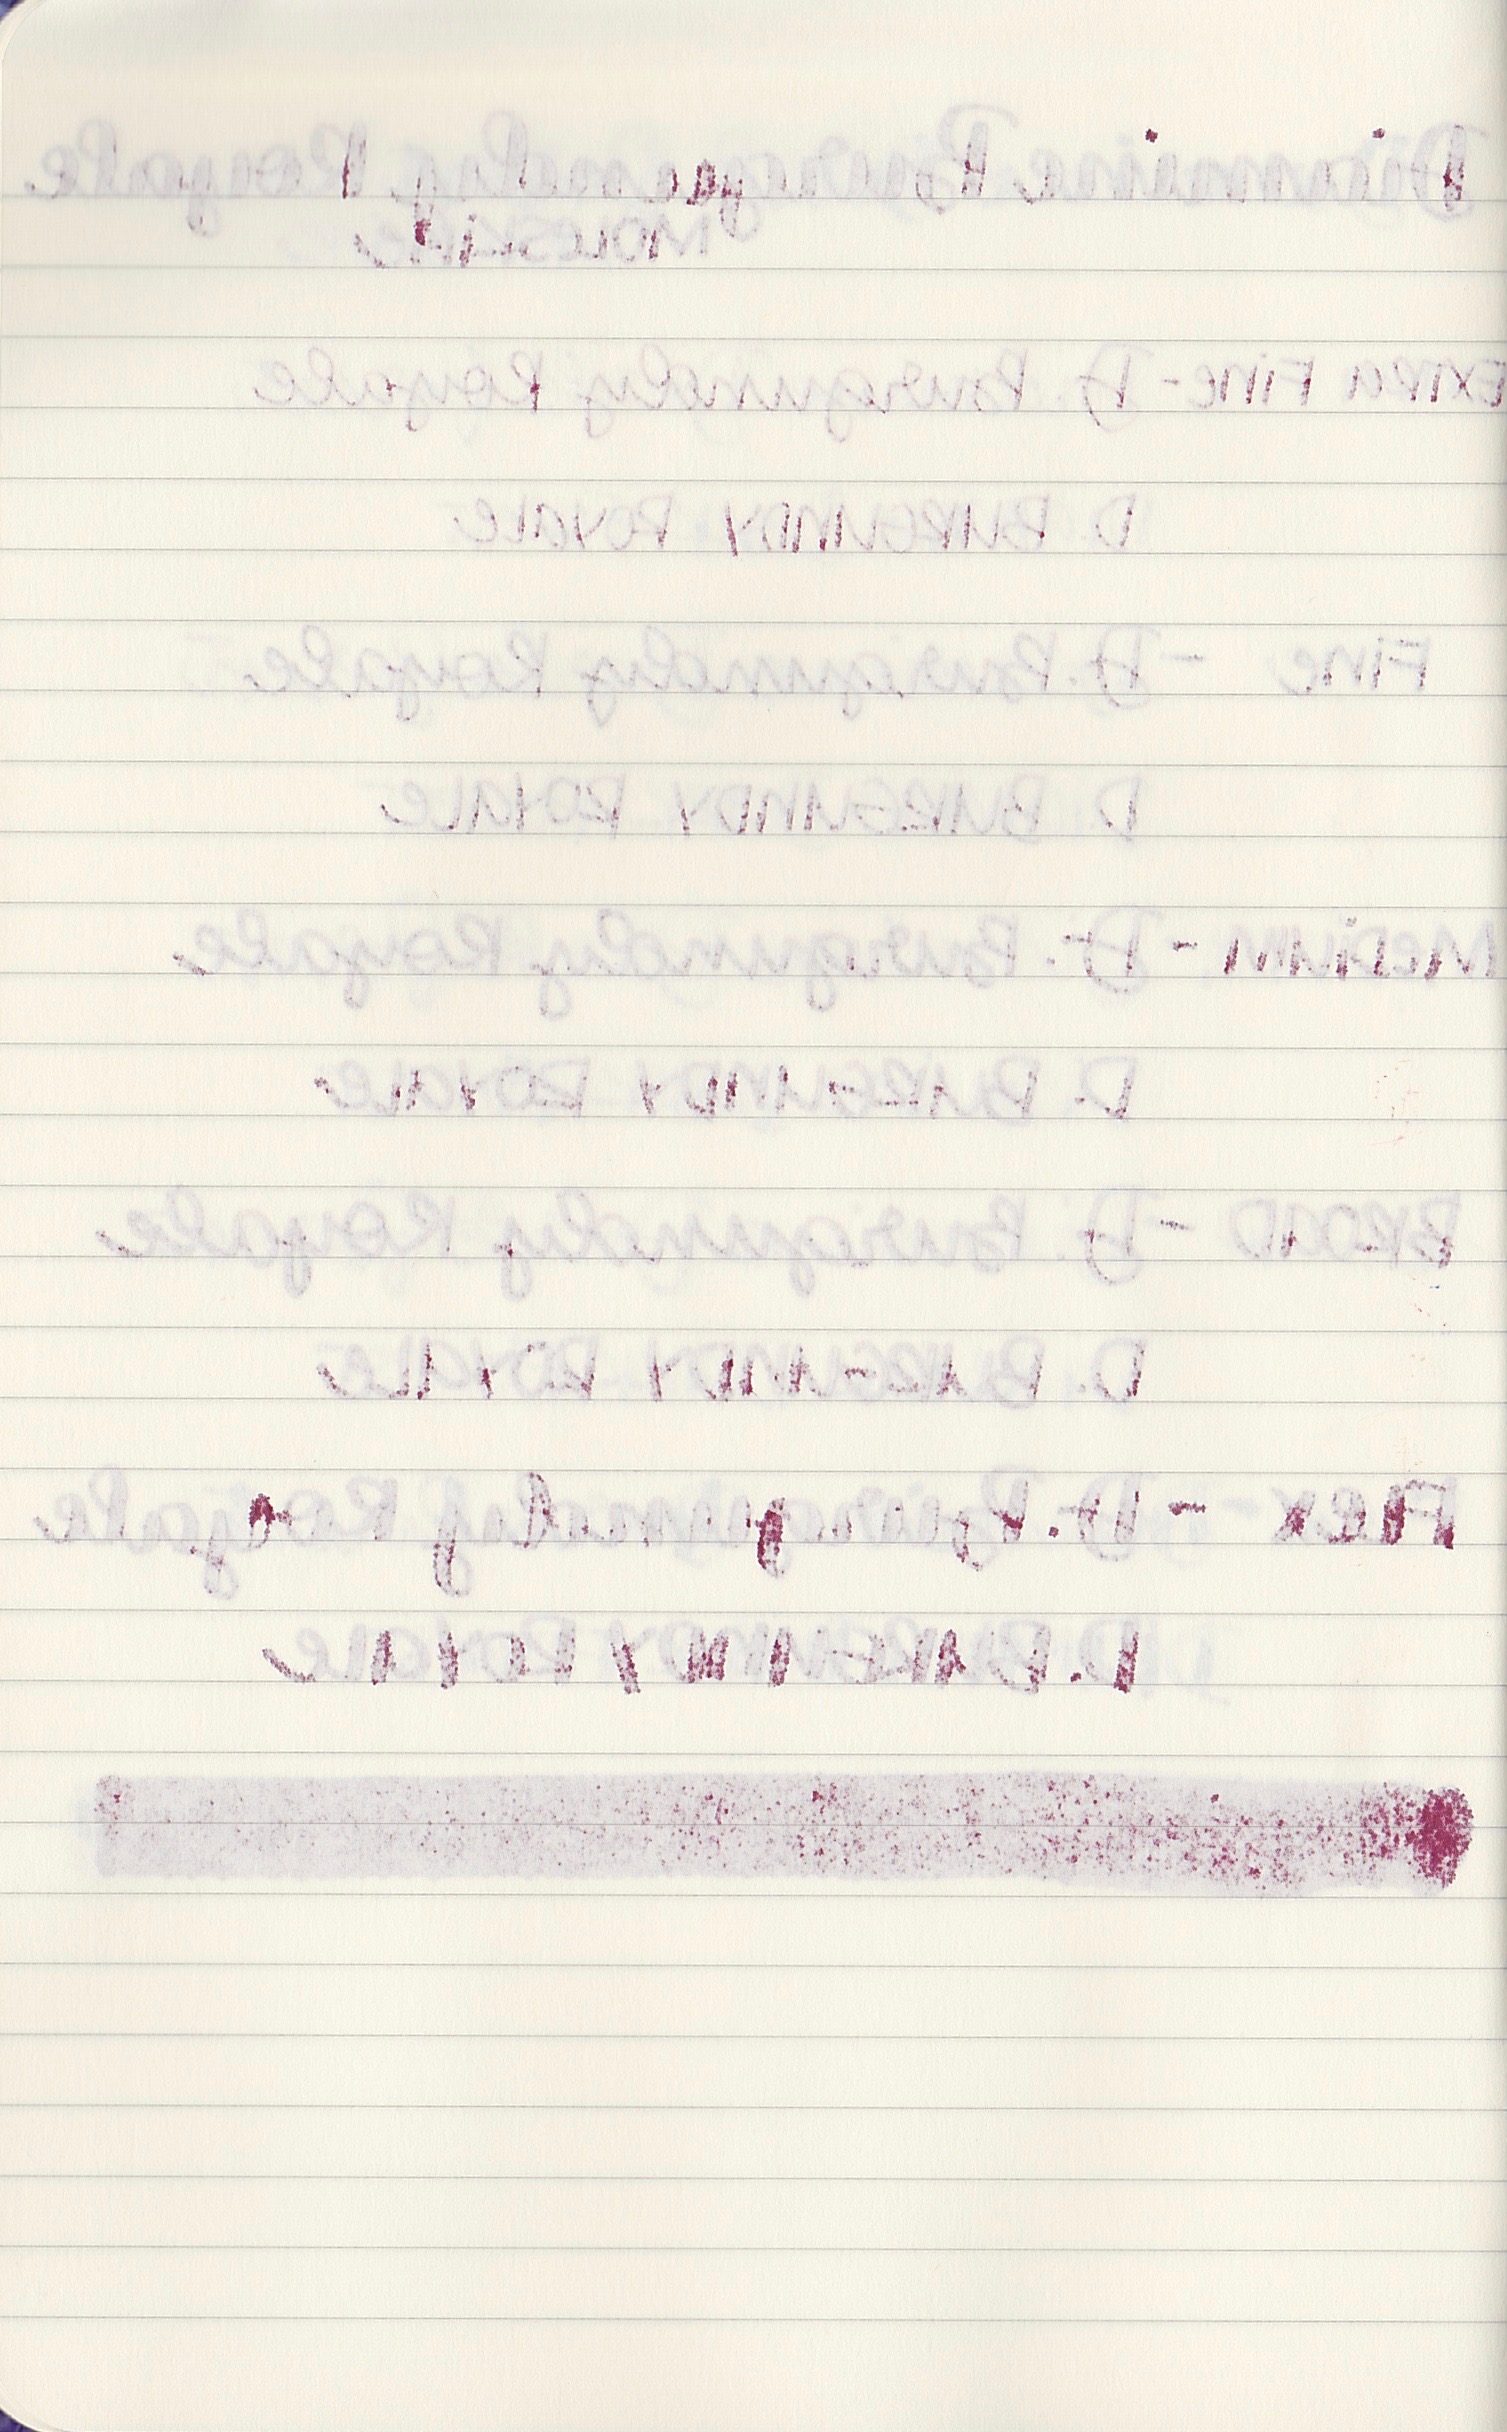 Diamine Burgundy Royale
Moleskine
Extra Fine - D. Burgundy Royale
D. Burgundy Royale
Fine - D. Burgundy Royale
D. Burgundy Royale
Medium - D. Burgundy Royale
D. Burgundy Royale
Broad - D. Burgundy Royale
D. Burgundy Royale
Flex - D. Burgundy Royale
D. Burgundy Royale